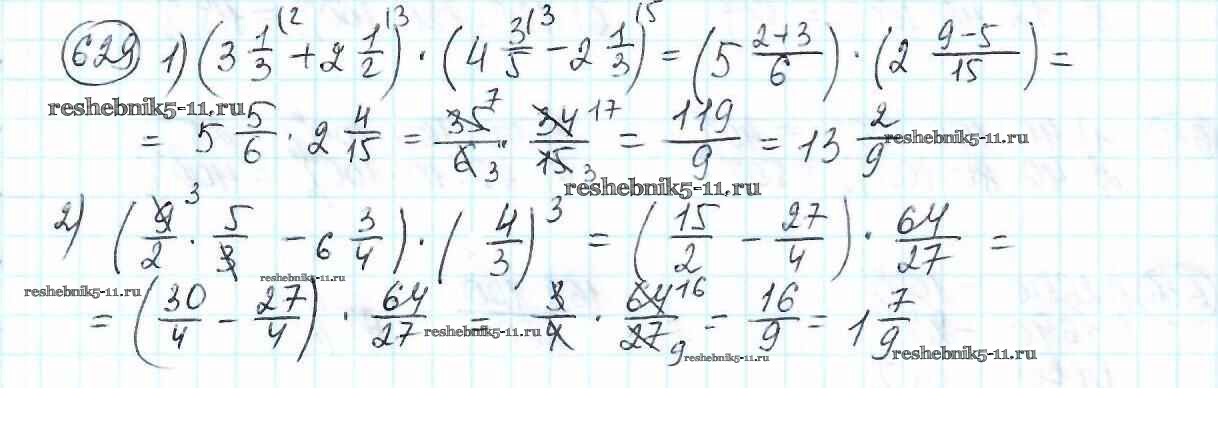 629 1) (3 1/3 (2 + 2 1/2 (3) · (4 3/5 (3 − 2 1/3 (5) = (5 2+3/6) · (2 9−5/15) =
reshebnik5-11.ru
= 5 5/6 · 2 4/15 = 35 7/6 3 · 34 17/15 3 = 119/9 = 13 2/9 reshebnik5-11.ru
reshebnik5-11.ru
2) (9 3/2 · 5/3 − 6 3/4) · (4/3)³ = (15/2 − 27/4) · 64/27 =
reshebnik5-11.ru
reshebnik5-11.ru
= (30/4 − 27/4) · 64/27 = 3/4 · 64 16/27 9 = 16/9 = 1 7/9
reshebnik5-11.ru
reshebnik5-11.ru
reshebnik5-11.ru